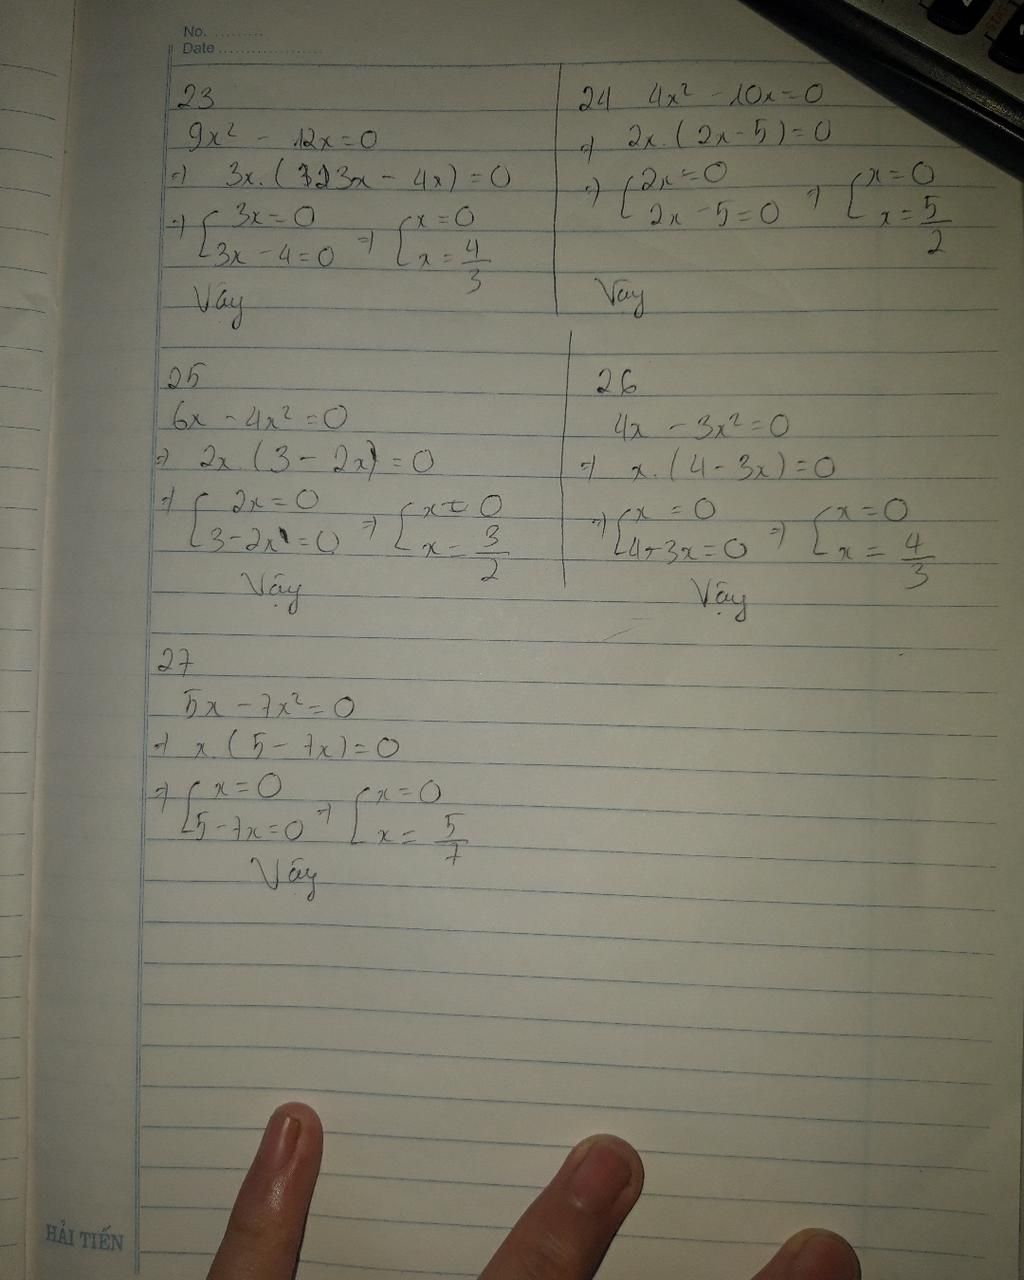 No. ..........
Date ....................
23
9x² - 12x = 0
=> 3x.(3x - 4x) = 0
=> [ 3x = 0 => [ x = 0
3x - 4 = 0 x = 4/3
Vây
24 4x² - 10x = 0
=> 2x.(2x - 5) = 0
=> [ 2x = 0 => [ x = 0
2x - 5 = 0 x = 5/2
Vây
25
6x - 4x² = 0
=> 2x.(3 - 2x) = 0
=> [ 2x = 0 => [ x = 0
3 - 2x = 0 x = 3/2
Vậy
26
4x - 3x² = 0
=> x.(4 - 3x) = 0
=> [ x = 0 => [ x = 0
4 - 3x = 0 x = 4/3
Vậy
27
5x - 7x² = 0
=> x.(5 - 7x) = 0
=> [ x = 0 => [ x = 0
5 - 7x = 0 x = 5/7
Vậy
HẢI TIẾN